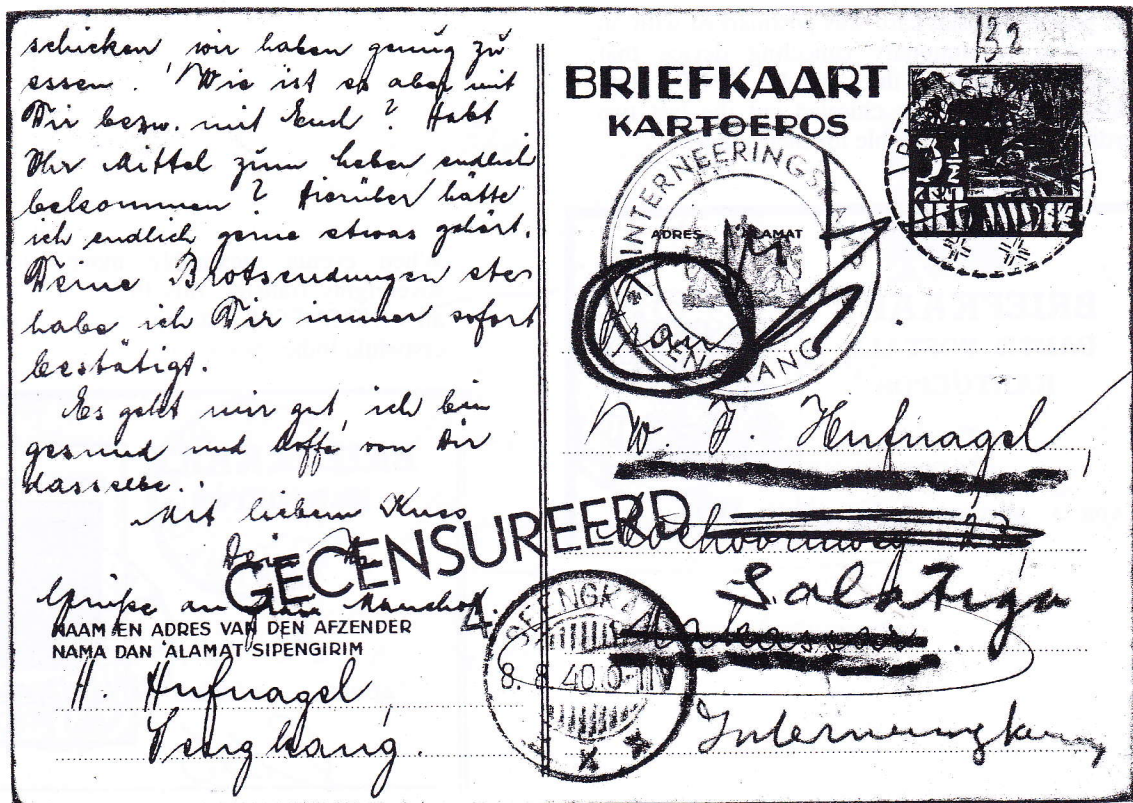 schicken, wir haben genug zu
essen. Wie ist es aber mit
Dir bezw. mit Euch? Habt
Ihr Mittel zum Leben endlich
bekommen? Hierüber hätte
ich endlich gerne etwas gehört.
Deine Brotsendungen etc
habe ich Dir immer sofort
bestätigt.
Es geht mir gut, ich bin
gesund und hoffe von Dir
dasselbe.
Mit liebem Kuss
Dein
Grüße an Frau
GECENSUREERD
NAAM EN ADRES VAN DEN AFZENDER
NAMA DAN ALAMAT SIPENGIRIM
H. Hufnagel
Sengkang.
132
BRIEFKAART
KARTOEPOS
3½
CENT
NED. INDIE
INTERNEERINGSKAMP
SENGKANG
ADRES ALAMAT
Frau
W. J. Hufnagel
23
Salatiga
Makassar.
SEENGKANG
8. 8. 40.
4